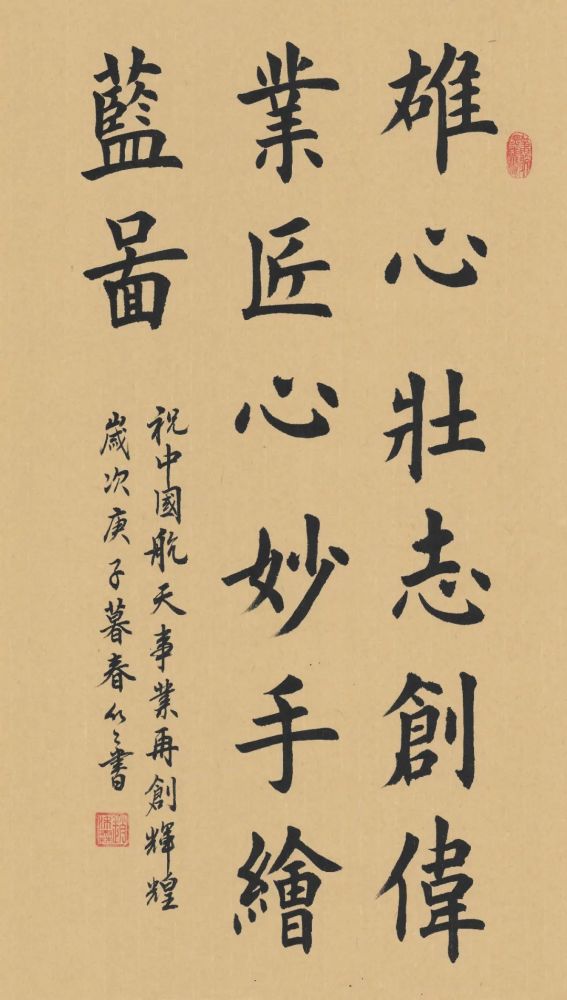 雄心壯志創偉
業匠心妙手繪
藍圖
祝中國航天事業再創輝煌
歲次庚子暮春仈之書